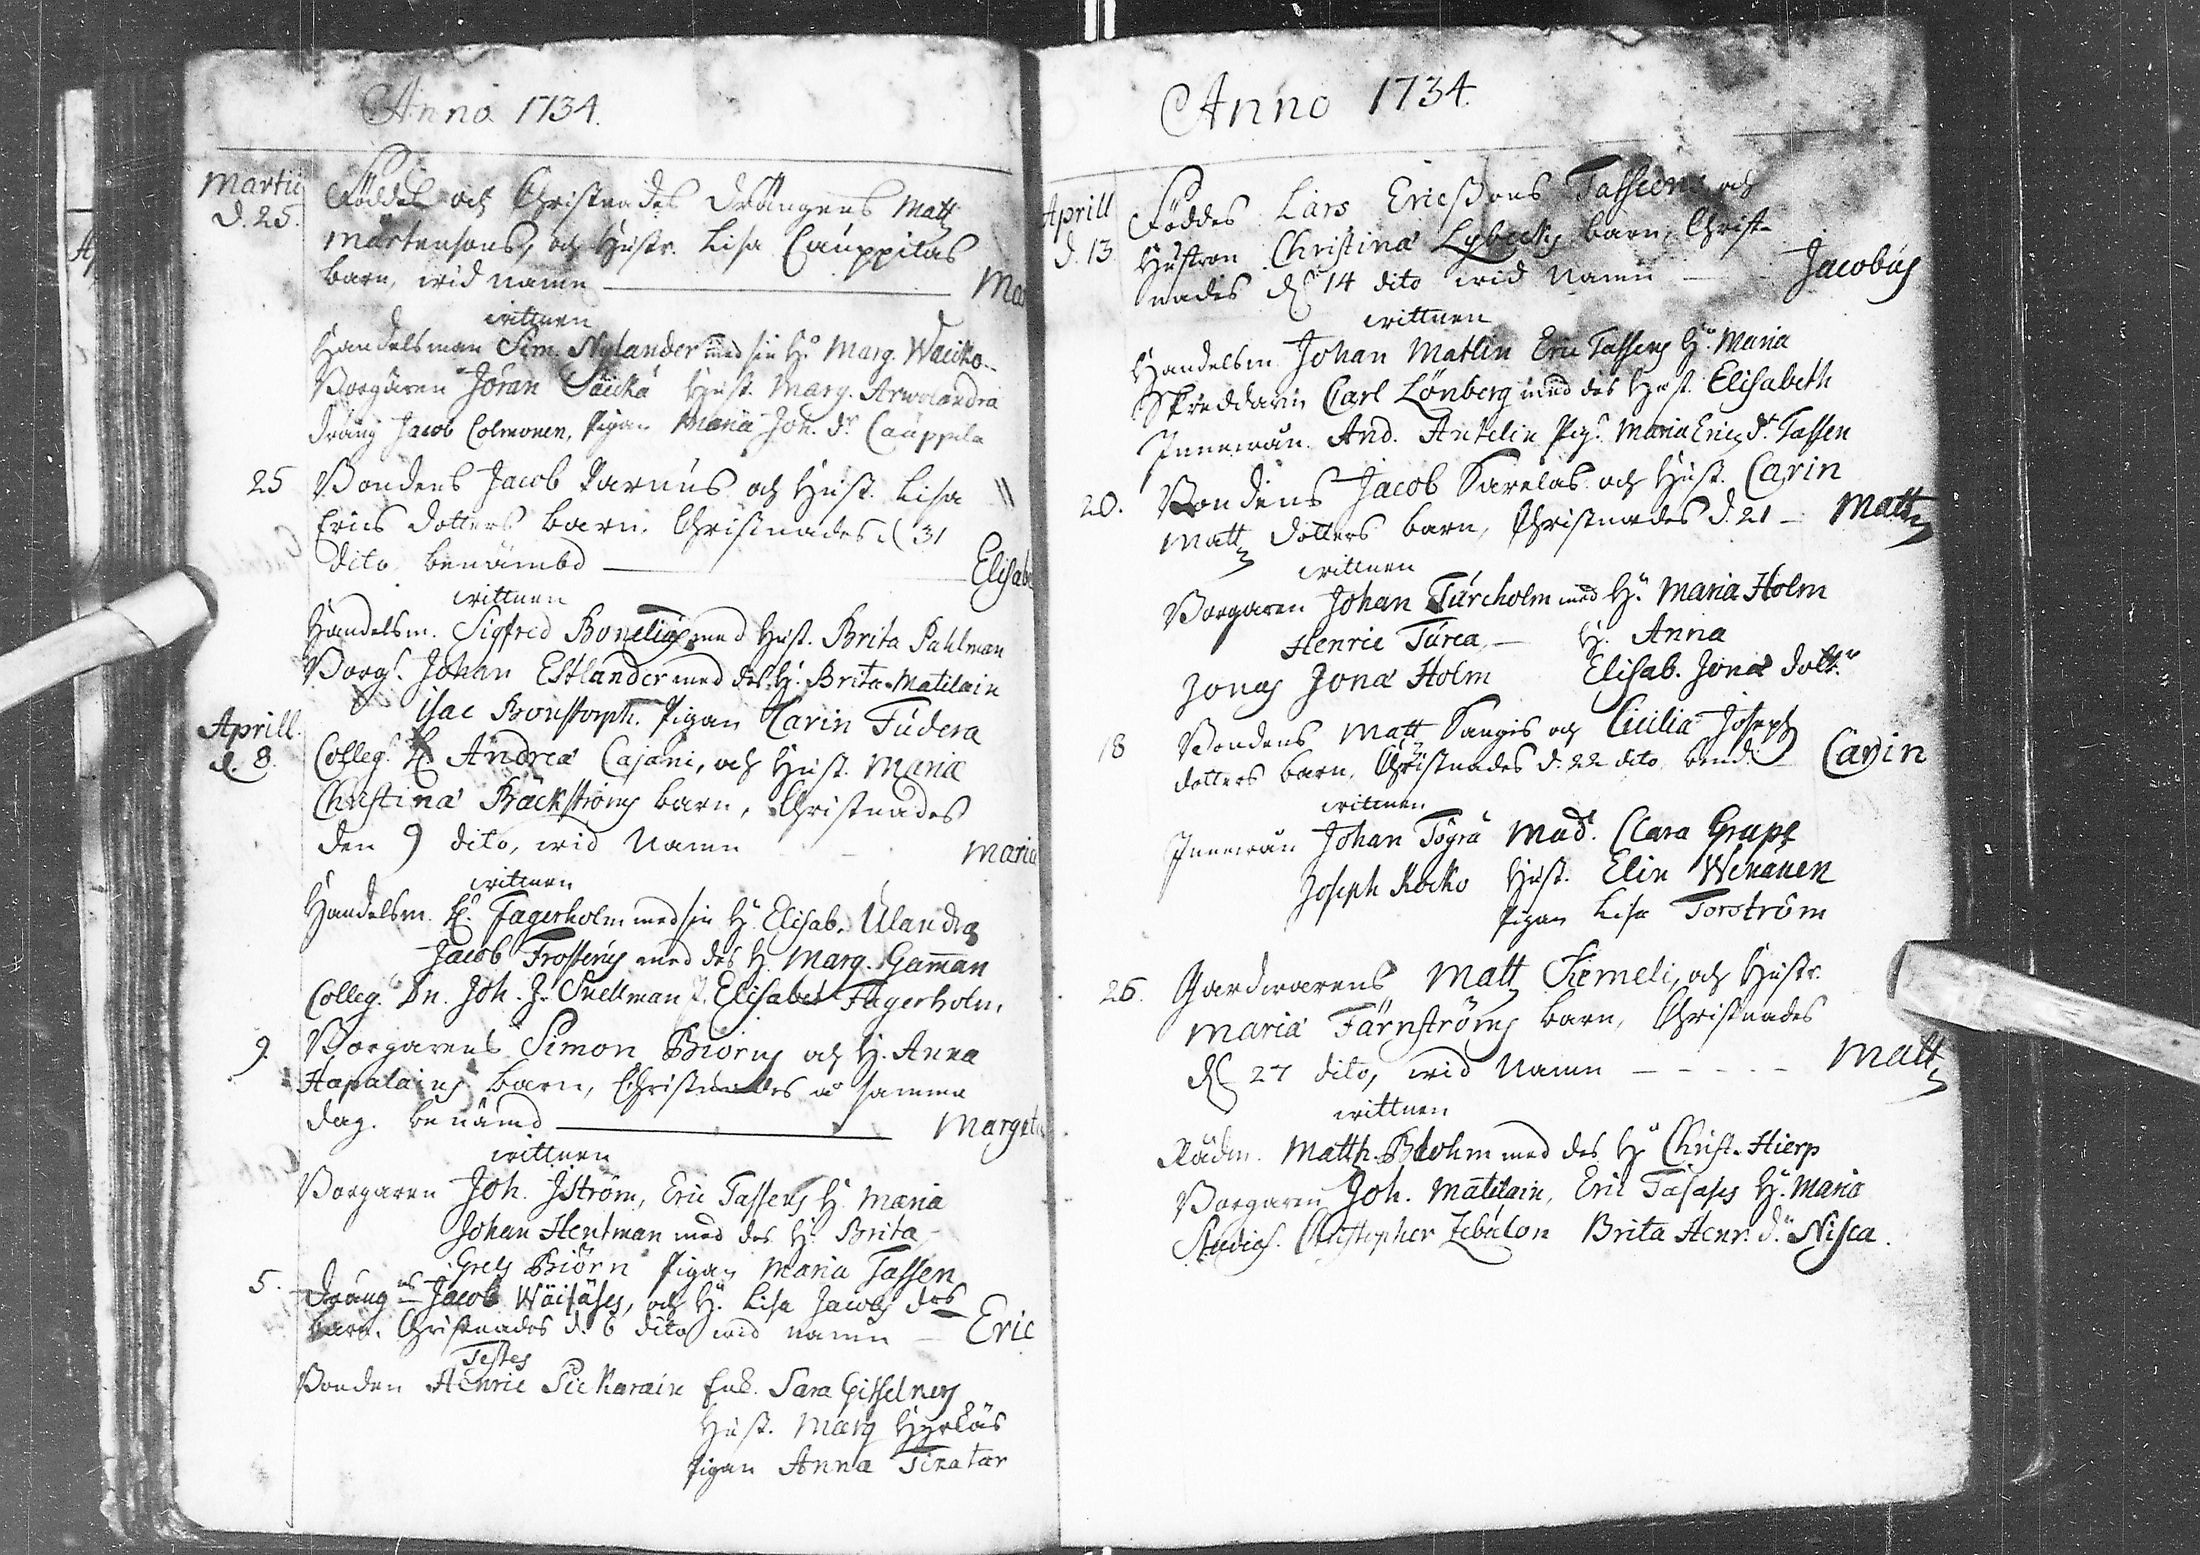 Anno 1734.
Martii
d. 25.
Föddes och Christnades Drängens Matt
Mårtensons, och Hustr. Lisa Cauppilas
barn, wid namn Ma
wittnen
Handelsman Sim. Nylander med sin H. Marg. Waicko
Borgaren Jöran Hust. Marg. Arwolandra
Dräng Jacob Colmonen, Pigan Maria Joh. dr Cauppila
25 Bondens Jacob Parnus och Hust. Lisa
Erics dotters barn. Christnades d 31
dito benämbd Elisab
wittnen
Handelsm. Sigfred Bonelius med Hust. Brita Pahlman
Borg. Johan Estlander med des H. Brita Matilain
Isac Bonstorph. Pigan Carin Tudera
Aprill.
d. 8. Colleg. H Andreæ Cajani, och Hust. Maria
Christina Bäckströms barn, Christnades
den 9 dito, wid Namn Maria
wittnen
Handelsm. H. Fagerholm med sin H. Elisab. Ulandra
Jacob Frosterus med des H. Marg. Gamman
Colleg. Dn. Joh. J. Snellman J. Elisabet Fagerholm.
9. Borgarens Simon Biörns och H. Anna
Hapalains barn, Christnades å samma
dag. benämd Margeta
wittnen
Borgaren Joh. Iström, Eric Tassens H. Maria
Johan Hentman med des H. Brita
Grels Biörn Pigan Maria Tassen
5. Dräng Jacob Wäisäses, och H. Lisa Jacobs drs
barn. Christnades d. 6 dito wid namn Eric
Testes
Bonden Henric Pickarain Enk. Sara Gisselners
Hust. Marg Hyrkäs
Pigan Anna Tiratar
Anno 1734.
Aprill
d. 13 Föddes Lars Ericßons Tassens och
Hustron Christina Lybecks barn, Christ-
nades d 14 dito wid Namn Jacobus
wittnen
Handelsm Johan Matlin Eric Tassens H. Maria
Skräddarn Carl Lönberg med des Hust. Elisabeth
Innewån. And. Antelin Pig. Maria Erics dr. Tassen
20. Bondens Jacob Karelas och Hust. Carin
Matt dotters barn, Christnades d. 21 Matt
wittnen
Borgaren Johan Turcholm med H. Maria Holm
Henric Turca H. Anna
Jonas Jonæ Holm Elisab. Jonæ dott.
18 Bondens Matt Kangis och Cicilia Joseph
dotters barn, Christnades d. 22 dito ben.d Carin
wittnen
Innewån Johan Tögrå Mad. Clara Grape
Joseph Rocko Hust. Elin Wenanen
Pigan Lisa Torström
26. Gardwarens Matt Kiemeli, och Hustr.
Maria Färnströms barn, Christnades
d 27 dito, wid Namn Matt
wittnen
Rådm. Matth. Blohm med des H. Christ. Hierp
Borgaren Joh. Matilain, Eric Tasases H. Maria
Studios. Christopher Zebulon Brita Henr. dr Nisca.